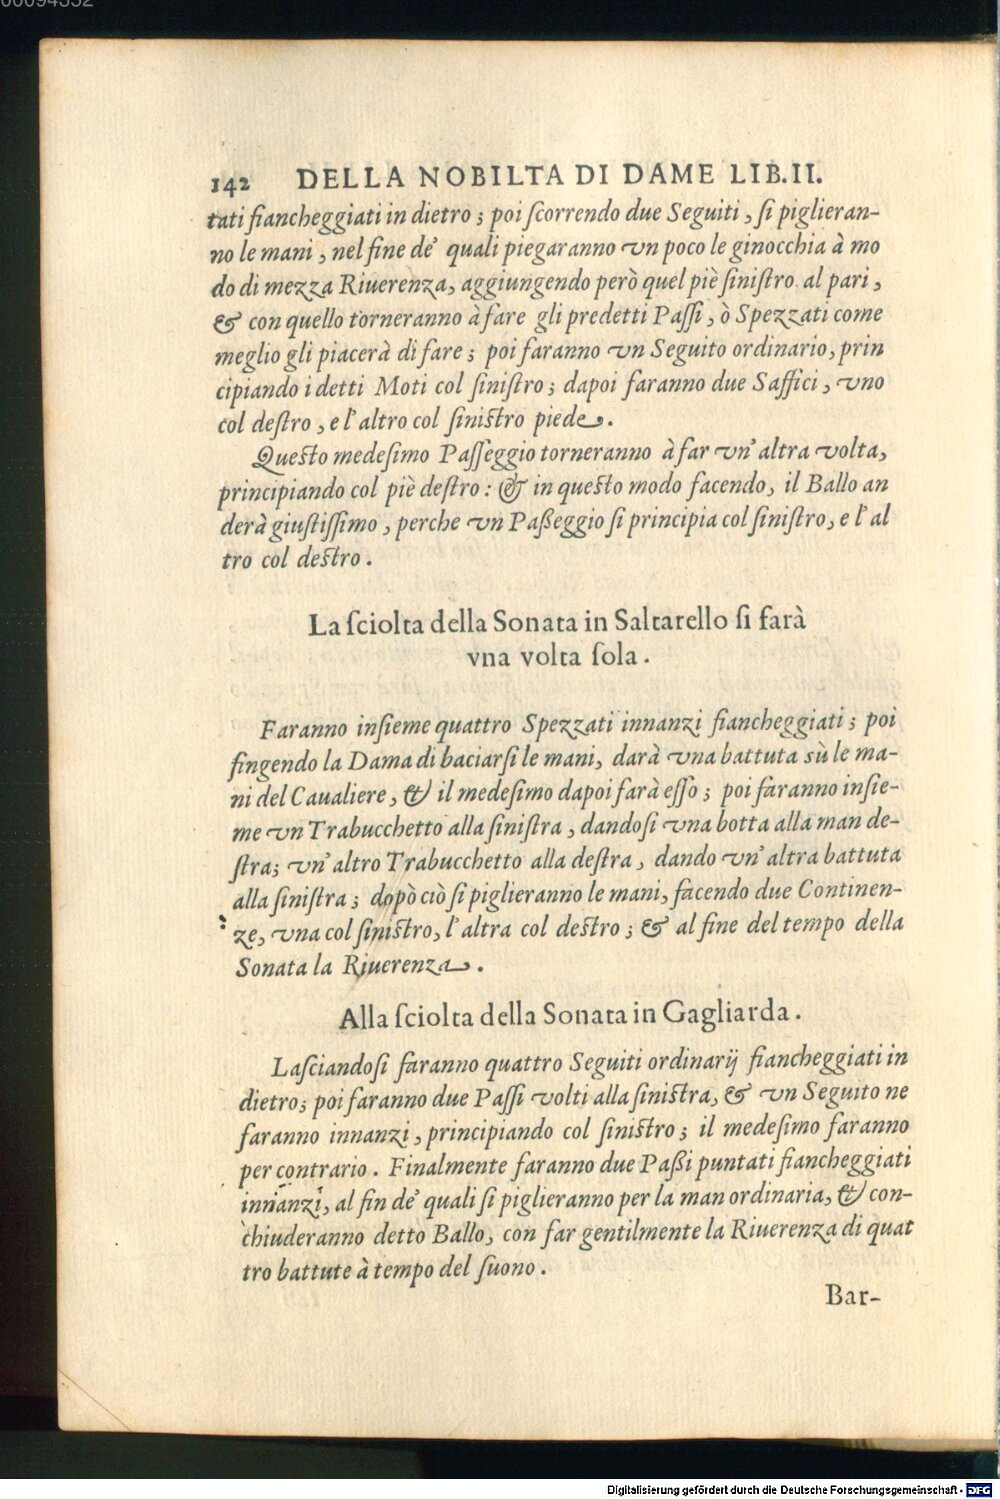 00094352
142 DELLA NOBILTA DI DAME LIB.II.
tati fiancheggiati in dietro ; poi ſcorrendo due Seguiti , ſi piglieran-
no le mani , nel fine de' quali piegaranno vn poco le ginocchia à mo
do di mezza Riuerenza, aggiungendo però quel piè ſiniſtro al pari ,
& con quello torneranno à fare gli predetti Paſſi , ò Spezzati come
meglio gli piacerà di fare ; poi faranno vn Seguito ordinario, prin
cipiando i detti Moti col ſiniſtro ; dapoi faranno due Saffici , vno
col deſtro , e l'altro col ſiniſtro piede .
Queſto medeſimo Paſſeggio torneranno à far vn' altra volta,
principiando col piè deſtro : & in queſto modo facendo, il Ballo an
derà giuſtiſſimo , perche vn Paßeggio ſi principia col ſiniſtro, e l'al
tro col deſtro .
La ſciolta della Sonata in Saltarello ſi farà
vna volta ſola .
Faranno inſieme quattro Spezzati innanzi fiancheggiati ; poi
fingendo la Dama di baciarſi le mani, darà vna battuta sù le ma-
ni del Caualiere , & il medeſimo dapoi farà eſſo ; poi faranno inſie-
me vn Trabucchetto alla ſiniſtra , dandoſi vna botta alla man de-
ſtra; vn' altro Trabucchetto alla deſtra , dando vn' altra battuta
alla ſiniſtra ; dopò ciò ſi piglieranno le mani, facendo due Continen-
ze, vna col ſiniſtro, l'altra col deſtro ; & al fine del tempo della
Sonata la Riuerenza .
Alla ſciolta della Sonata in Gagliarda .
Laſciandoſi faranno quattro Seguiti ordinarij fiancheggiati in
dietro; poi faranno due Paſſi volti alla ſiniſtra, & vn Seguito ne
faranno innanzi , principiando col ſiniſtro ; il medeſimo faranno
per contrario . Finalmente faranno due Paßi puntati fiancheggiati
innanzi, al fin de' quali ſi piglieranno per la man ordinaria, & con-
chiuderanno detto Ballo, con far gentilmente la Riuerenza di quat
tro battute à tempo del ſuono .
Bar-
Digitalisierung gefördert durch die Deutsche Forschungsgemeinschaft - DFG